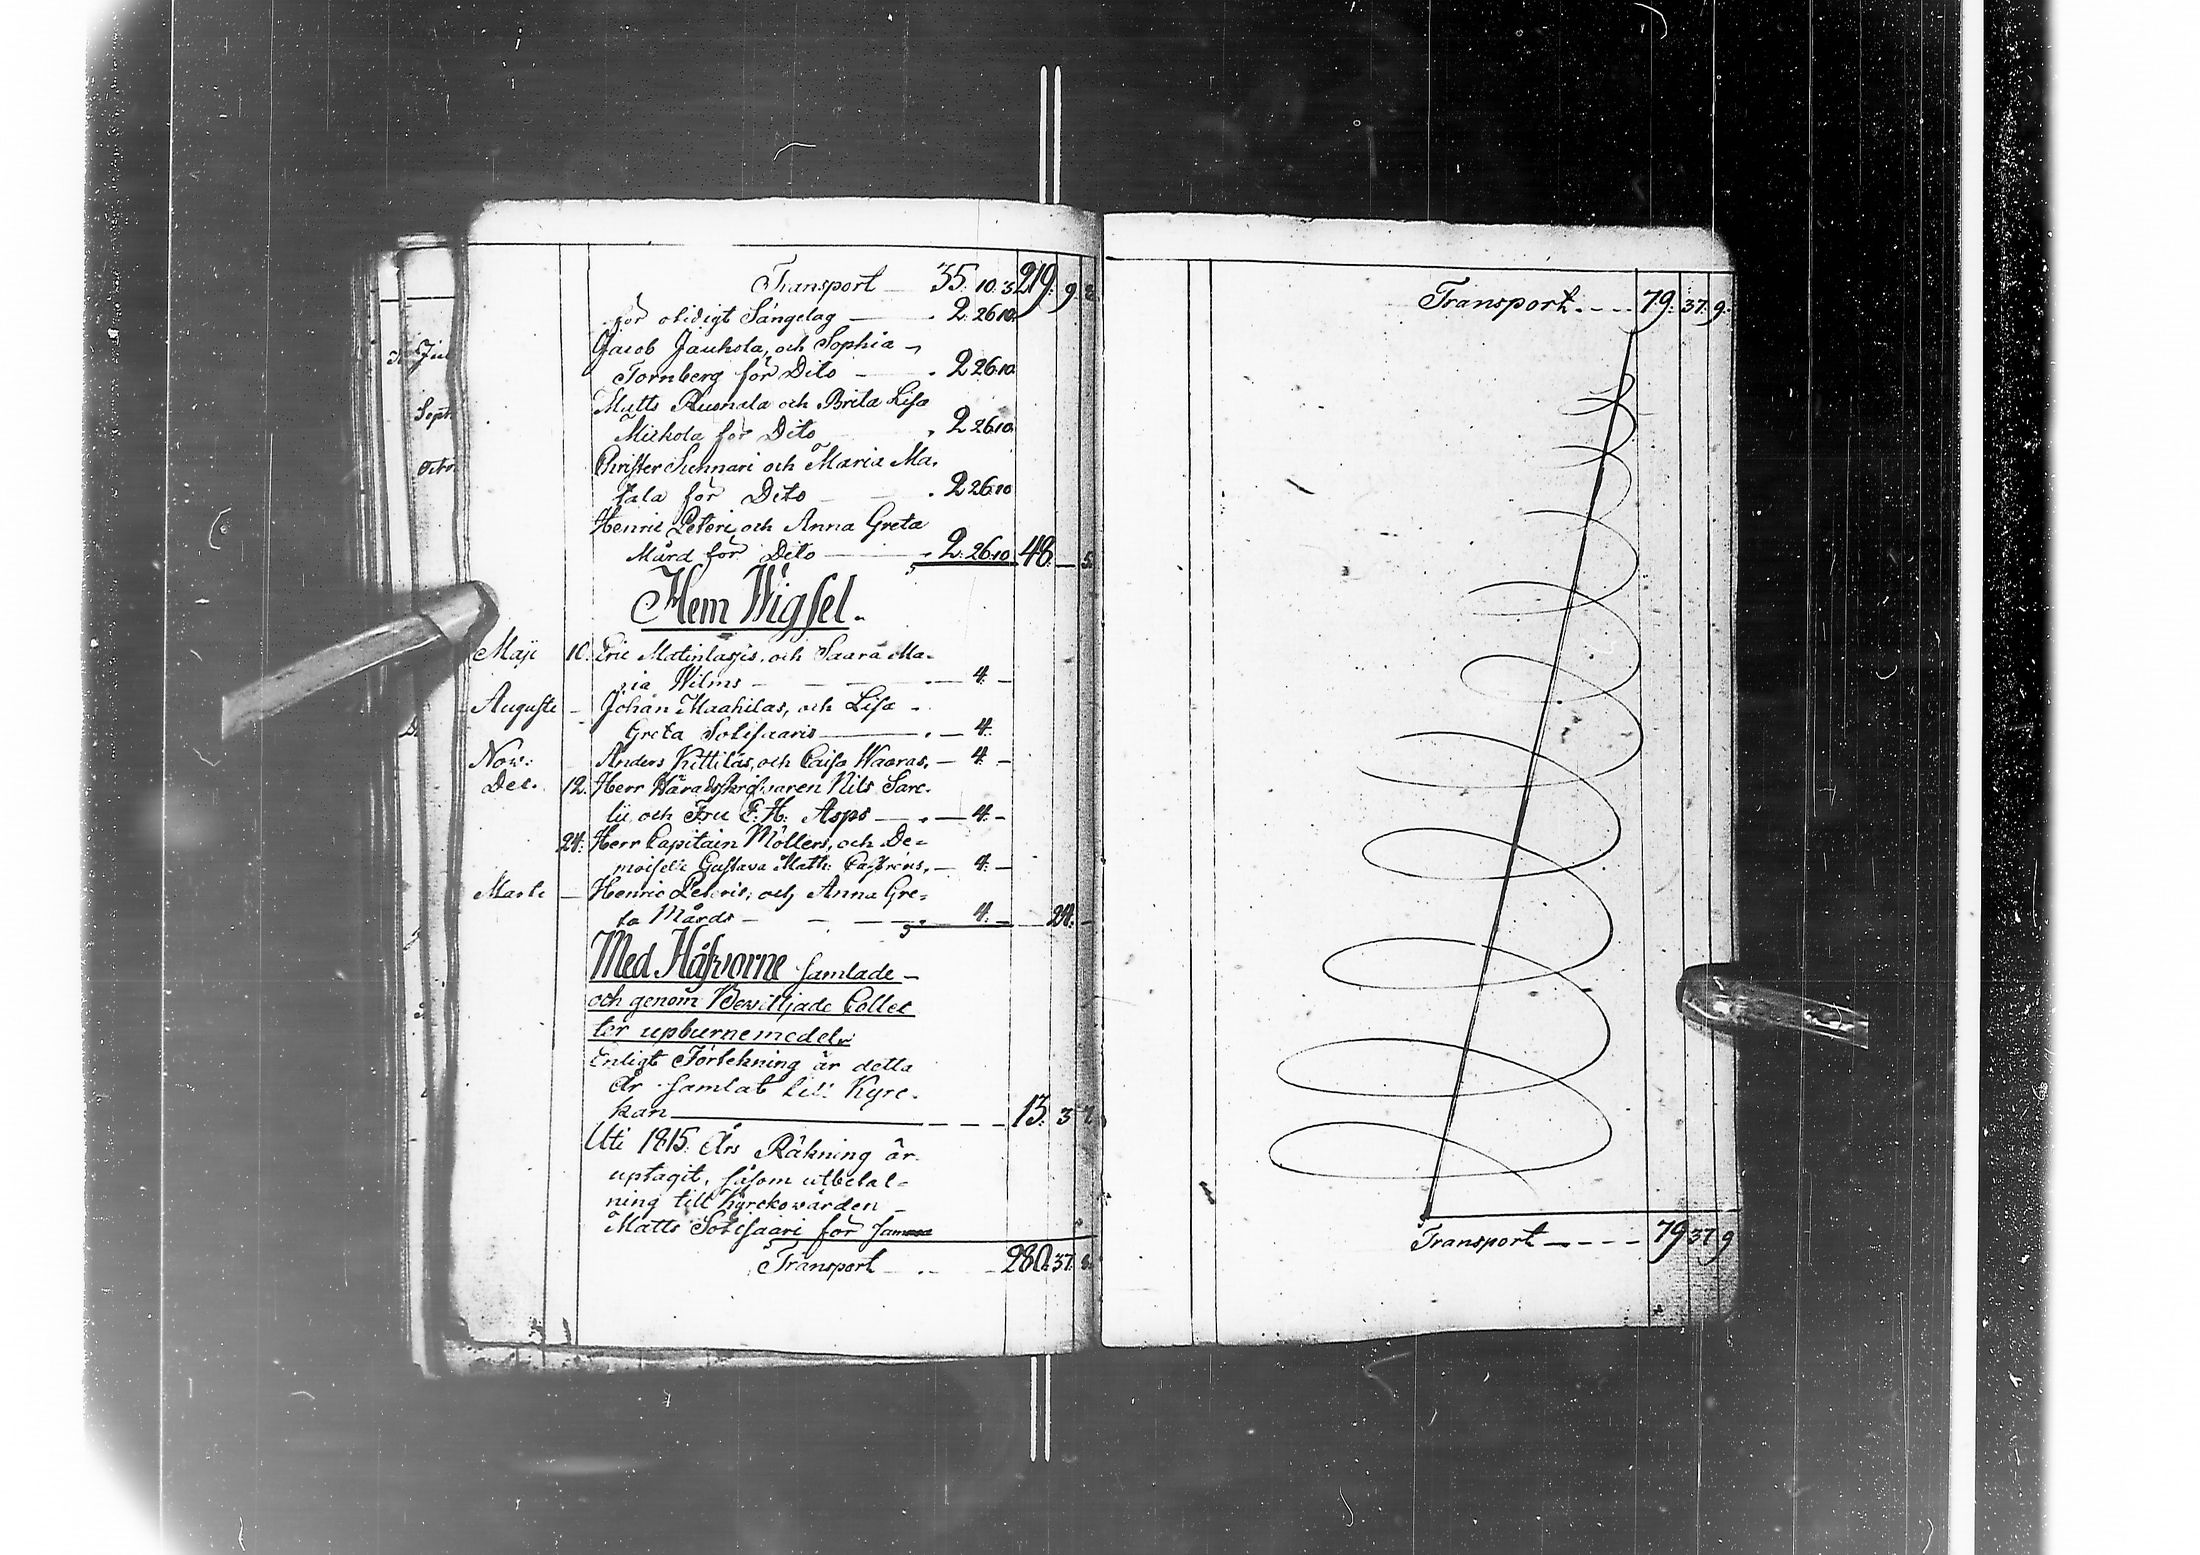 Transport — 35. 10. 3 219. 9
för otidigt Sängelag — 2. 26.10.
Jacob Jaukola, och Sophia
Tornberg för Dito — 2 26.10
Matts Rusnala och Brita Lisa
Mickola för Dito 2 26.10
Christer Sunnari och Maria Ma-
tala för Dito — 2 26.10
Henric Peteri, och Anna Greta
Mård för Dito — 2. 26.10 48. — 5.
Hem Wigsel.
Maji 10. Eric Matinlassis, och Saara Ma-
ria Wilms — 4. —
Auguste — Johan Maahilas, och Lisa
Greta Sotisaaris — 4.
Now: Anders Kittilas, och Caisa Waaras, — 4. —
Dec. 12. Herr Häradsskrifwaren Nils Sare-
lii, och Fru E. H. Asps — 4. —
24. Herr Capitain Möllers, och De-
moiselle Gustava Math: Castréns, — 4. —
Marti — Henric Peteris, och Anna Gre-
ta Mårds — 4. — 24. —
Med Håfvorne samlade —
och genom Bewilljade Collec
ter upburne medel.
Enligt Förtekning är detta
År samlat till Kyrc-
kan — 13. 3
Uti 1815. Års Räkning är
uptagit, såsom utbetal-
ning till Kyrckowärden
Matts Sotisaari för samma
Transport — 280. 37.
Transport. - - - 79. 37. 9.
Transport - - - - 79 37 9
Jul
Sept
Octo